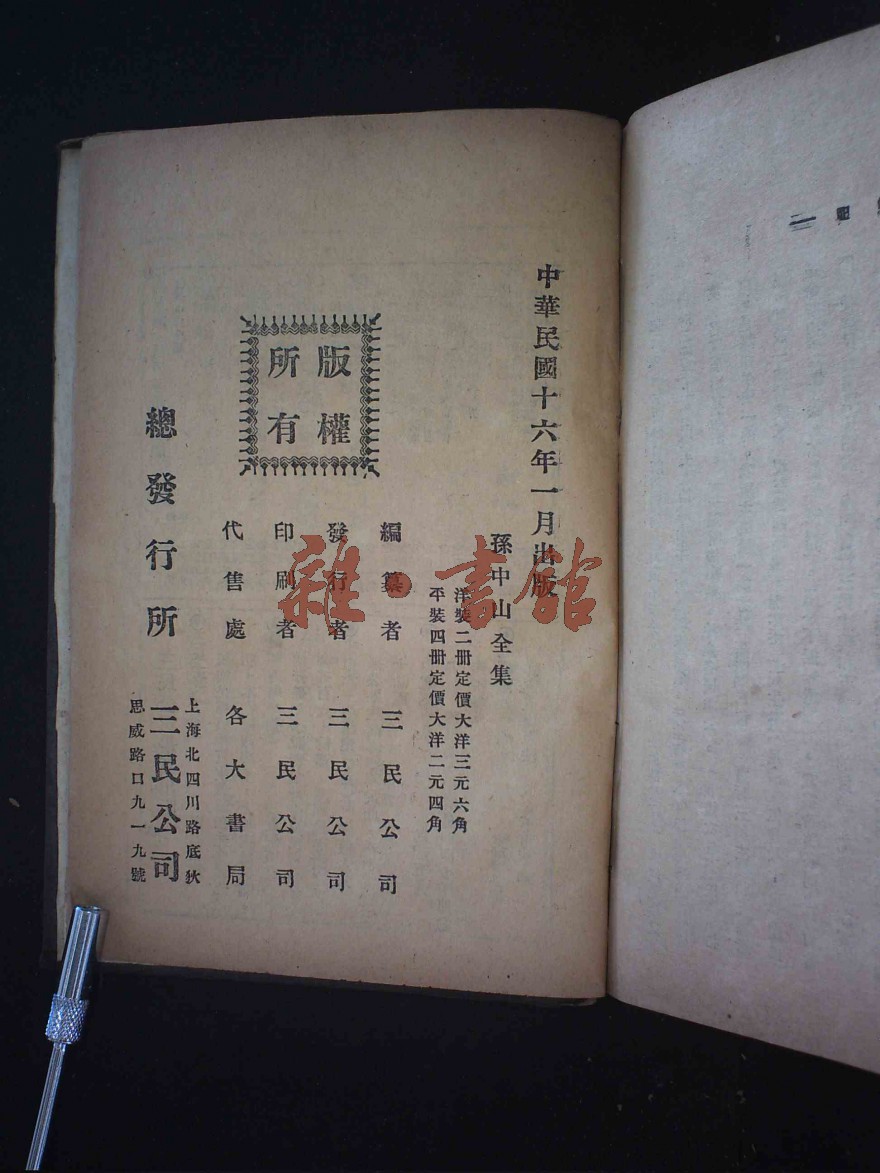 中華民國十六年一月出版
孫中山全集
洋裝二冊定價大洋三元六角
平裝四冊定價大洋二元四角
版權
所有
編纂者 三民公司
發行者 三民公司
印刷者 三民公司
代售處 各大書局
總發行所
上海北四川路底狄
三民公司
思威路口九一九號
雜·書館